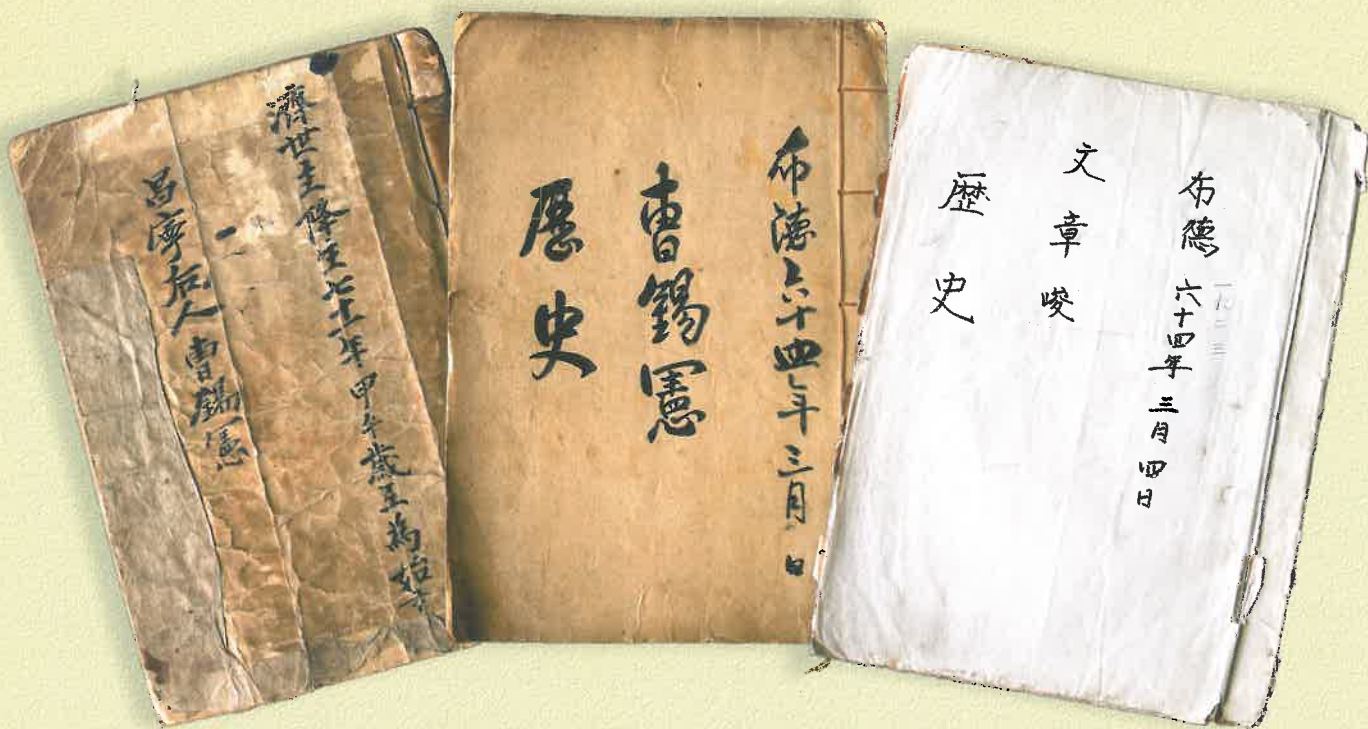 濟世主降生七十一年甲午歲
昌寧后人 曺錫憲
布德六十四年 三月 日
曺錫憲
歷史
布德 六十四年 三月 四日
一九二三
文章峻
歴史